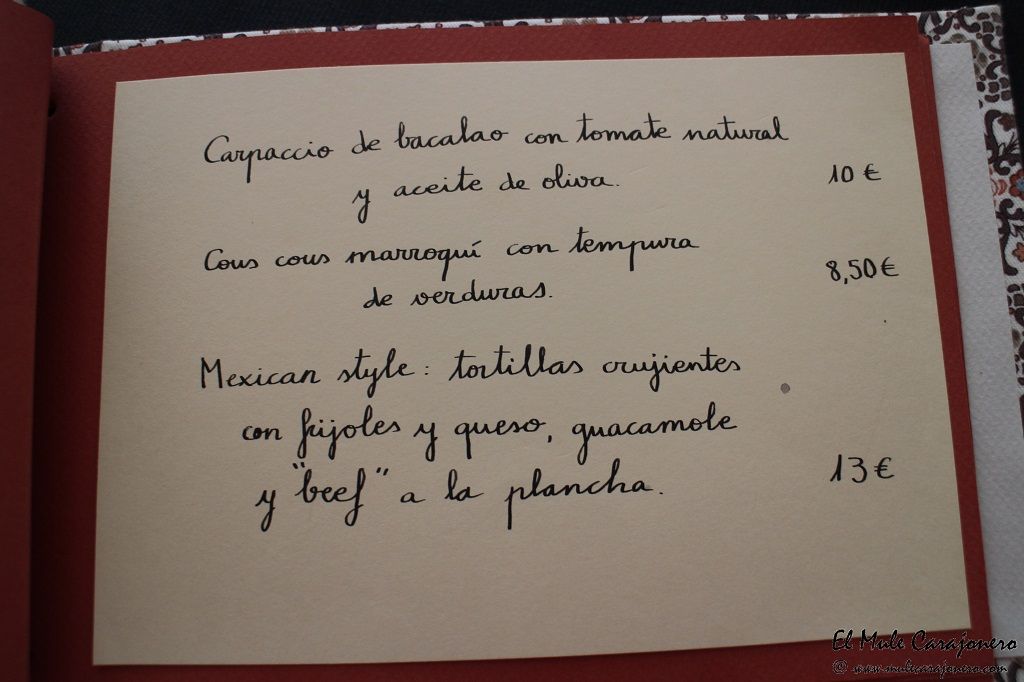 Carpaccio de bacalao con tomate natural
y aceite de oliva. 10 €
Cous cous marroquí con tempura
de verduras. 8,50 €
Mexican style: tortillas crujientes
con frijoles y queso, guacamole
y "beef" a la plancha. 13 €
El Mule Carajonero
© www.mulecarajonero.com